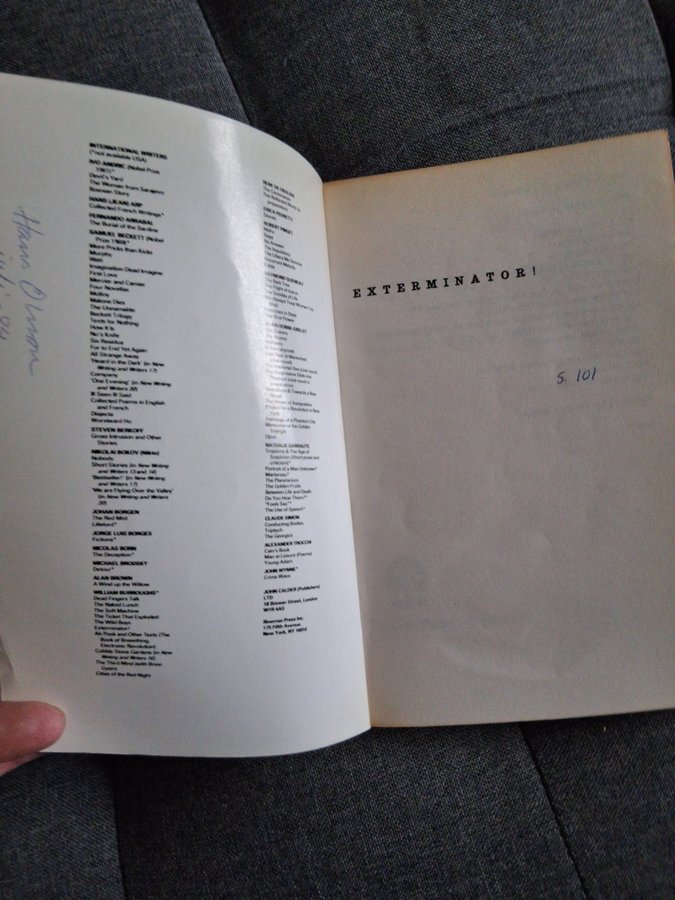 INTERNATIONAL WRITERS
(*not available USA)
IVO ANDRIC (Nobel Prize
1961)*
Devil's Yard
The Woman from Sarajevo
Bosnian Story
HANS (JEAN) ARP
Collected French Writings*
FERNANDO ARRABAL
The Burial of the Sardine
SAMUEL BECKETT (Nobel
Prize 1969)*
More Pricks than Kicks
Murphy
Watt
Imagination Dead Imagine
First Love
Mercier and Camier
Four Novellas
Molloy
Malone Dies
The Unnamable
Beckett Trilogy
Texts for Nothing
How It Is
No's Knife
Six Residua
For to End Yet Again
All Strange Away
'Heard in the Dark' (in New
Writing and Writers 17)
Company
'One Evening' (in New Writing
and Writers 20)
Ill Seen Ill Said
Collected Poems in English
and French
Disjecta
Worstward Ho
STEVEN BERKOFF
Gross Intrusion and Other
Stories
NIKOLAI BOKOV (Nikto)
Nobody
Short Stories (in New Writing
and Writers 13 and 14)
'Bestseller!' (in New Writing
and Writers 17)
'We are Flying Over the Valley'
(in New Writing and Writers
20)
JOHAN BORGEN
The Red Mist
Lillelord*
JORGE LUIS BORGES
Fictions*
NICOLAS BORN
The Deception*
MICHAEL BRODSKY
Detour*
ALAN BROWN
A Wind up the Willow
WILLIAM BURROUGHS*
Dead Fingers Talk
The Naked Lunch
The Soft Machine
The Ticket That Exploded
The Wild Boys
Exterminator!
Ah Pook and Other Texts (The
Book of Breeething,
Electronic Revolution)
Cobble Stone Gardens (in New
Writing and Writers
The Third Mind (with Brion
Gysin)
Cities of the Red Night
ROBERT PINGET
RAYMOND QUENEAU
The Bark Tree
The Flight of Icarus
Exercises in Style
The Blue Flower
ALAIN ROBBE-GRILLET
The Voyeur
Project for a Revolution in New
York
Topology of a Phantom City
Memories of the Golden
Triangle
Djinn
NATHALIE SARRAUTE
Tropisms & The Age of
Suspicion (Short prose and
criticism)*
Portrait of a Man Unknown*
Martereau*
The Planetarium
The Golden Fruits
Between Life and Death
Do You Hear Them?*
"Fools Say"*
The Use of Speech*
CLAUDE SIMON
Conducting Bodies
Triptych
The Georgics
ALEXANDER TROCCHI
Cain's Book
Man at Leisure (Poems)
Young Adam
JOHN WYNNE*
Crime Wave
JOHN CALDER (Publishers)
LTD
18 Brewer Street, London
W1R 4AS
Riverrun Press Inc.
175 Fifth Avenue,
New York, NY 10010
EXTERMINATOR!
S. 101